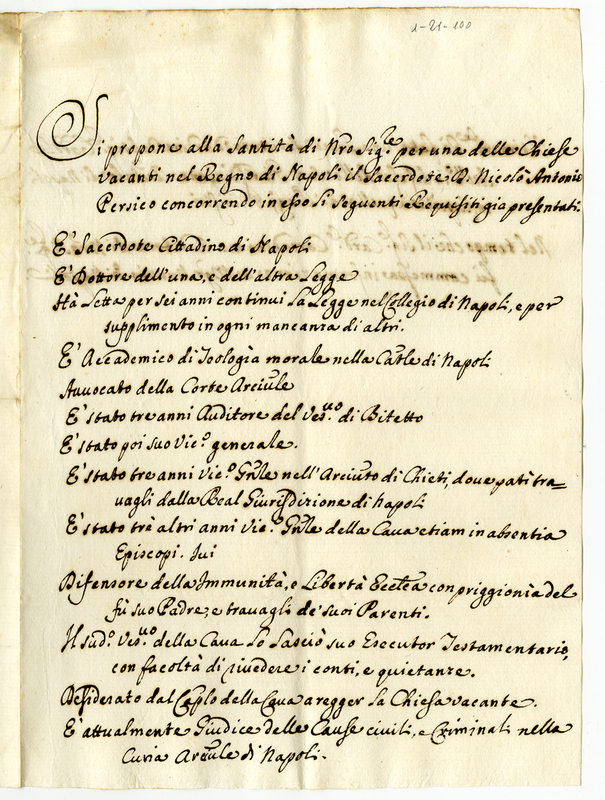 1-21-100
Si propone alla Santità di Nro Sig.re per una delle Chiese
vacanti nel Regno di Napoli il Sacerdote D. Nicolò Antonio
Persico concorrendo in esso li seguenti Requisiti gia presentati.
E' Sacerdote Cittadino di Napoli
E' Dottore dell'una, e dell'altra Legge
Hà Letta per sei anni continui La Legge nel Collegio di Napoli, e per
supplimento in ogni mancanza di altri.
E' Accademico di Teologia morale nella Catle di Napoli
Avvocato della Corte Arciule
E' stato tre anni Auditore del Ves.uo di Bitetto
E' stato poi suo Vic.o generale.
E' stato tre anni Vic.o Gnle nell'Arciuto di Chieti, dove patì tra=
uagli dalla Real Giurisdizione di Napoli
E' stato trè altri anni Vic.o Gnle della Cava etiam in absentia
Episcopi. sui
Difensore della Immunità, e Libertà Ecclea con priggionia del
fù suo Padre, e travagli de' suoi Parenti.
Il sud.o Ves.uo della Cava Lo Lasciò suo Esecutor Testamentario,
con facoltà di rivedere i conti, e quietanze.
Desiderato dal Caplo della Cava a regger La Chiesa vacante.
E' attualmente Giudice delle Cause civili, e Criminali nella
Curia Arcule di Napoli.